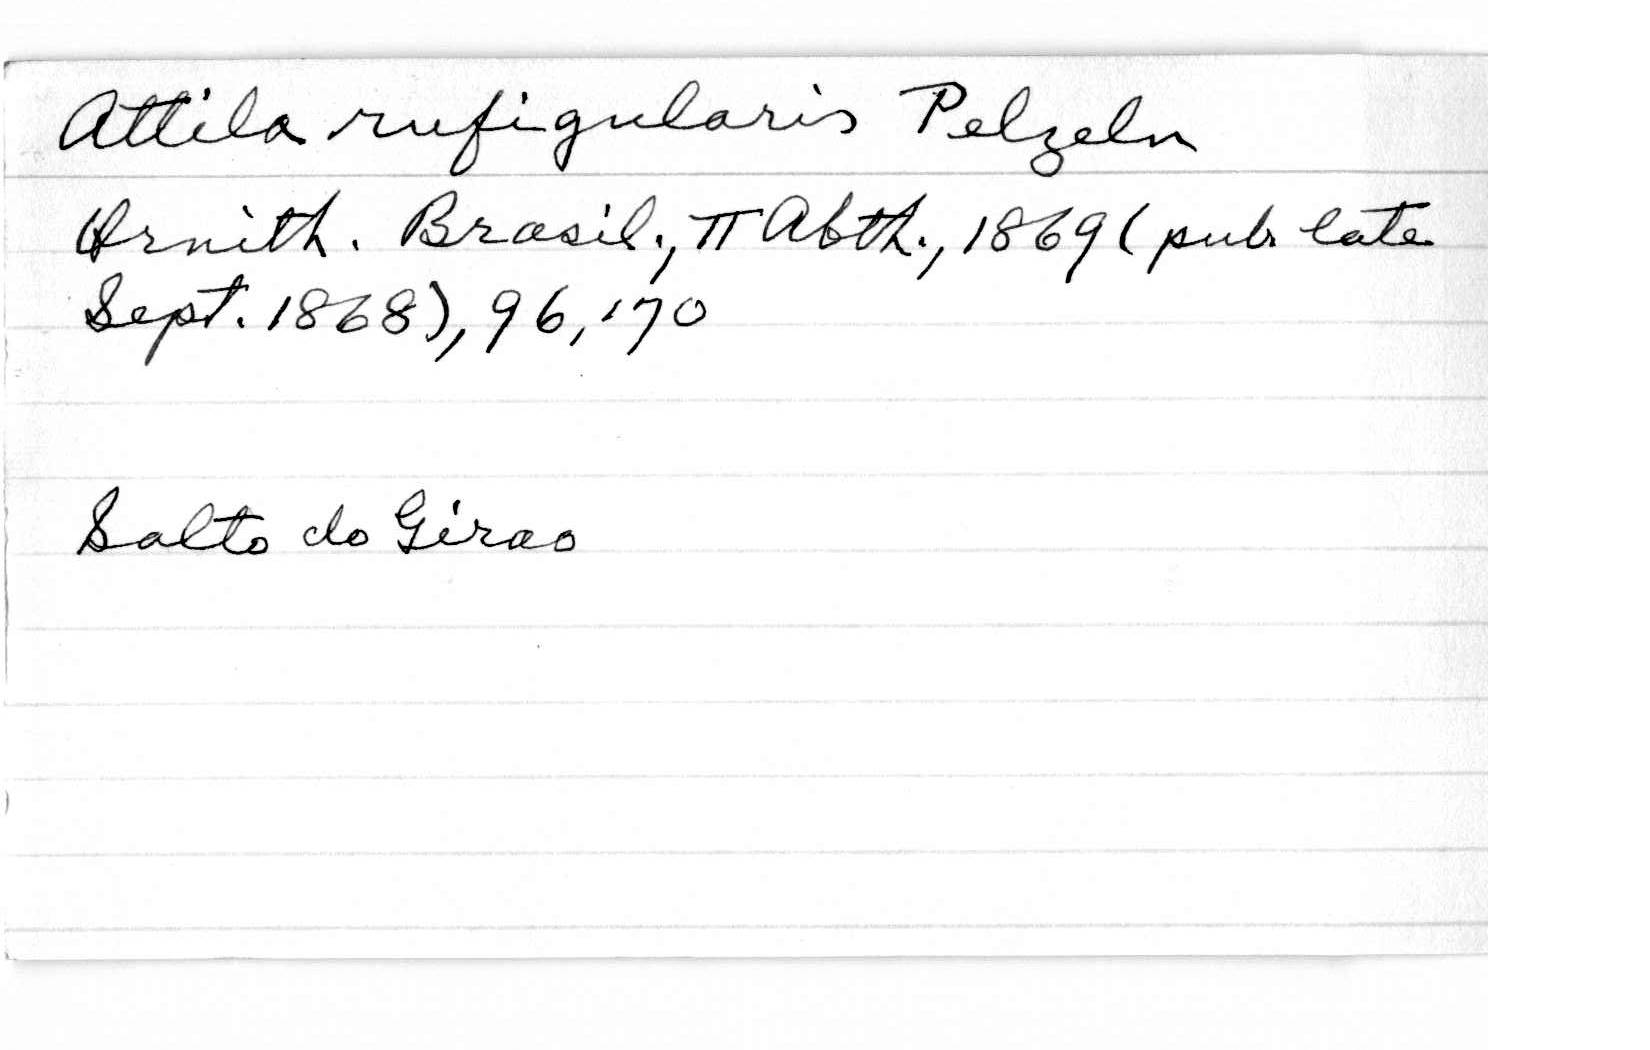 Attila rufigularis Pelzeln
Ornith. Brasil., II Abth., 1869 (pub late
Sept. 1868), 96, 170
Salto do Girao